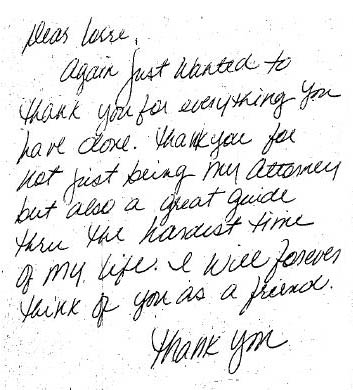 Dear Lorre,
Again just wanted to
thank you for everything you
have done. Thank you for
not just being my Attorney
but also a great guide
thru the hardest time
of my life. I will forever
think of you as a friend.
Thank you